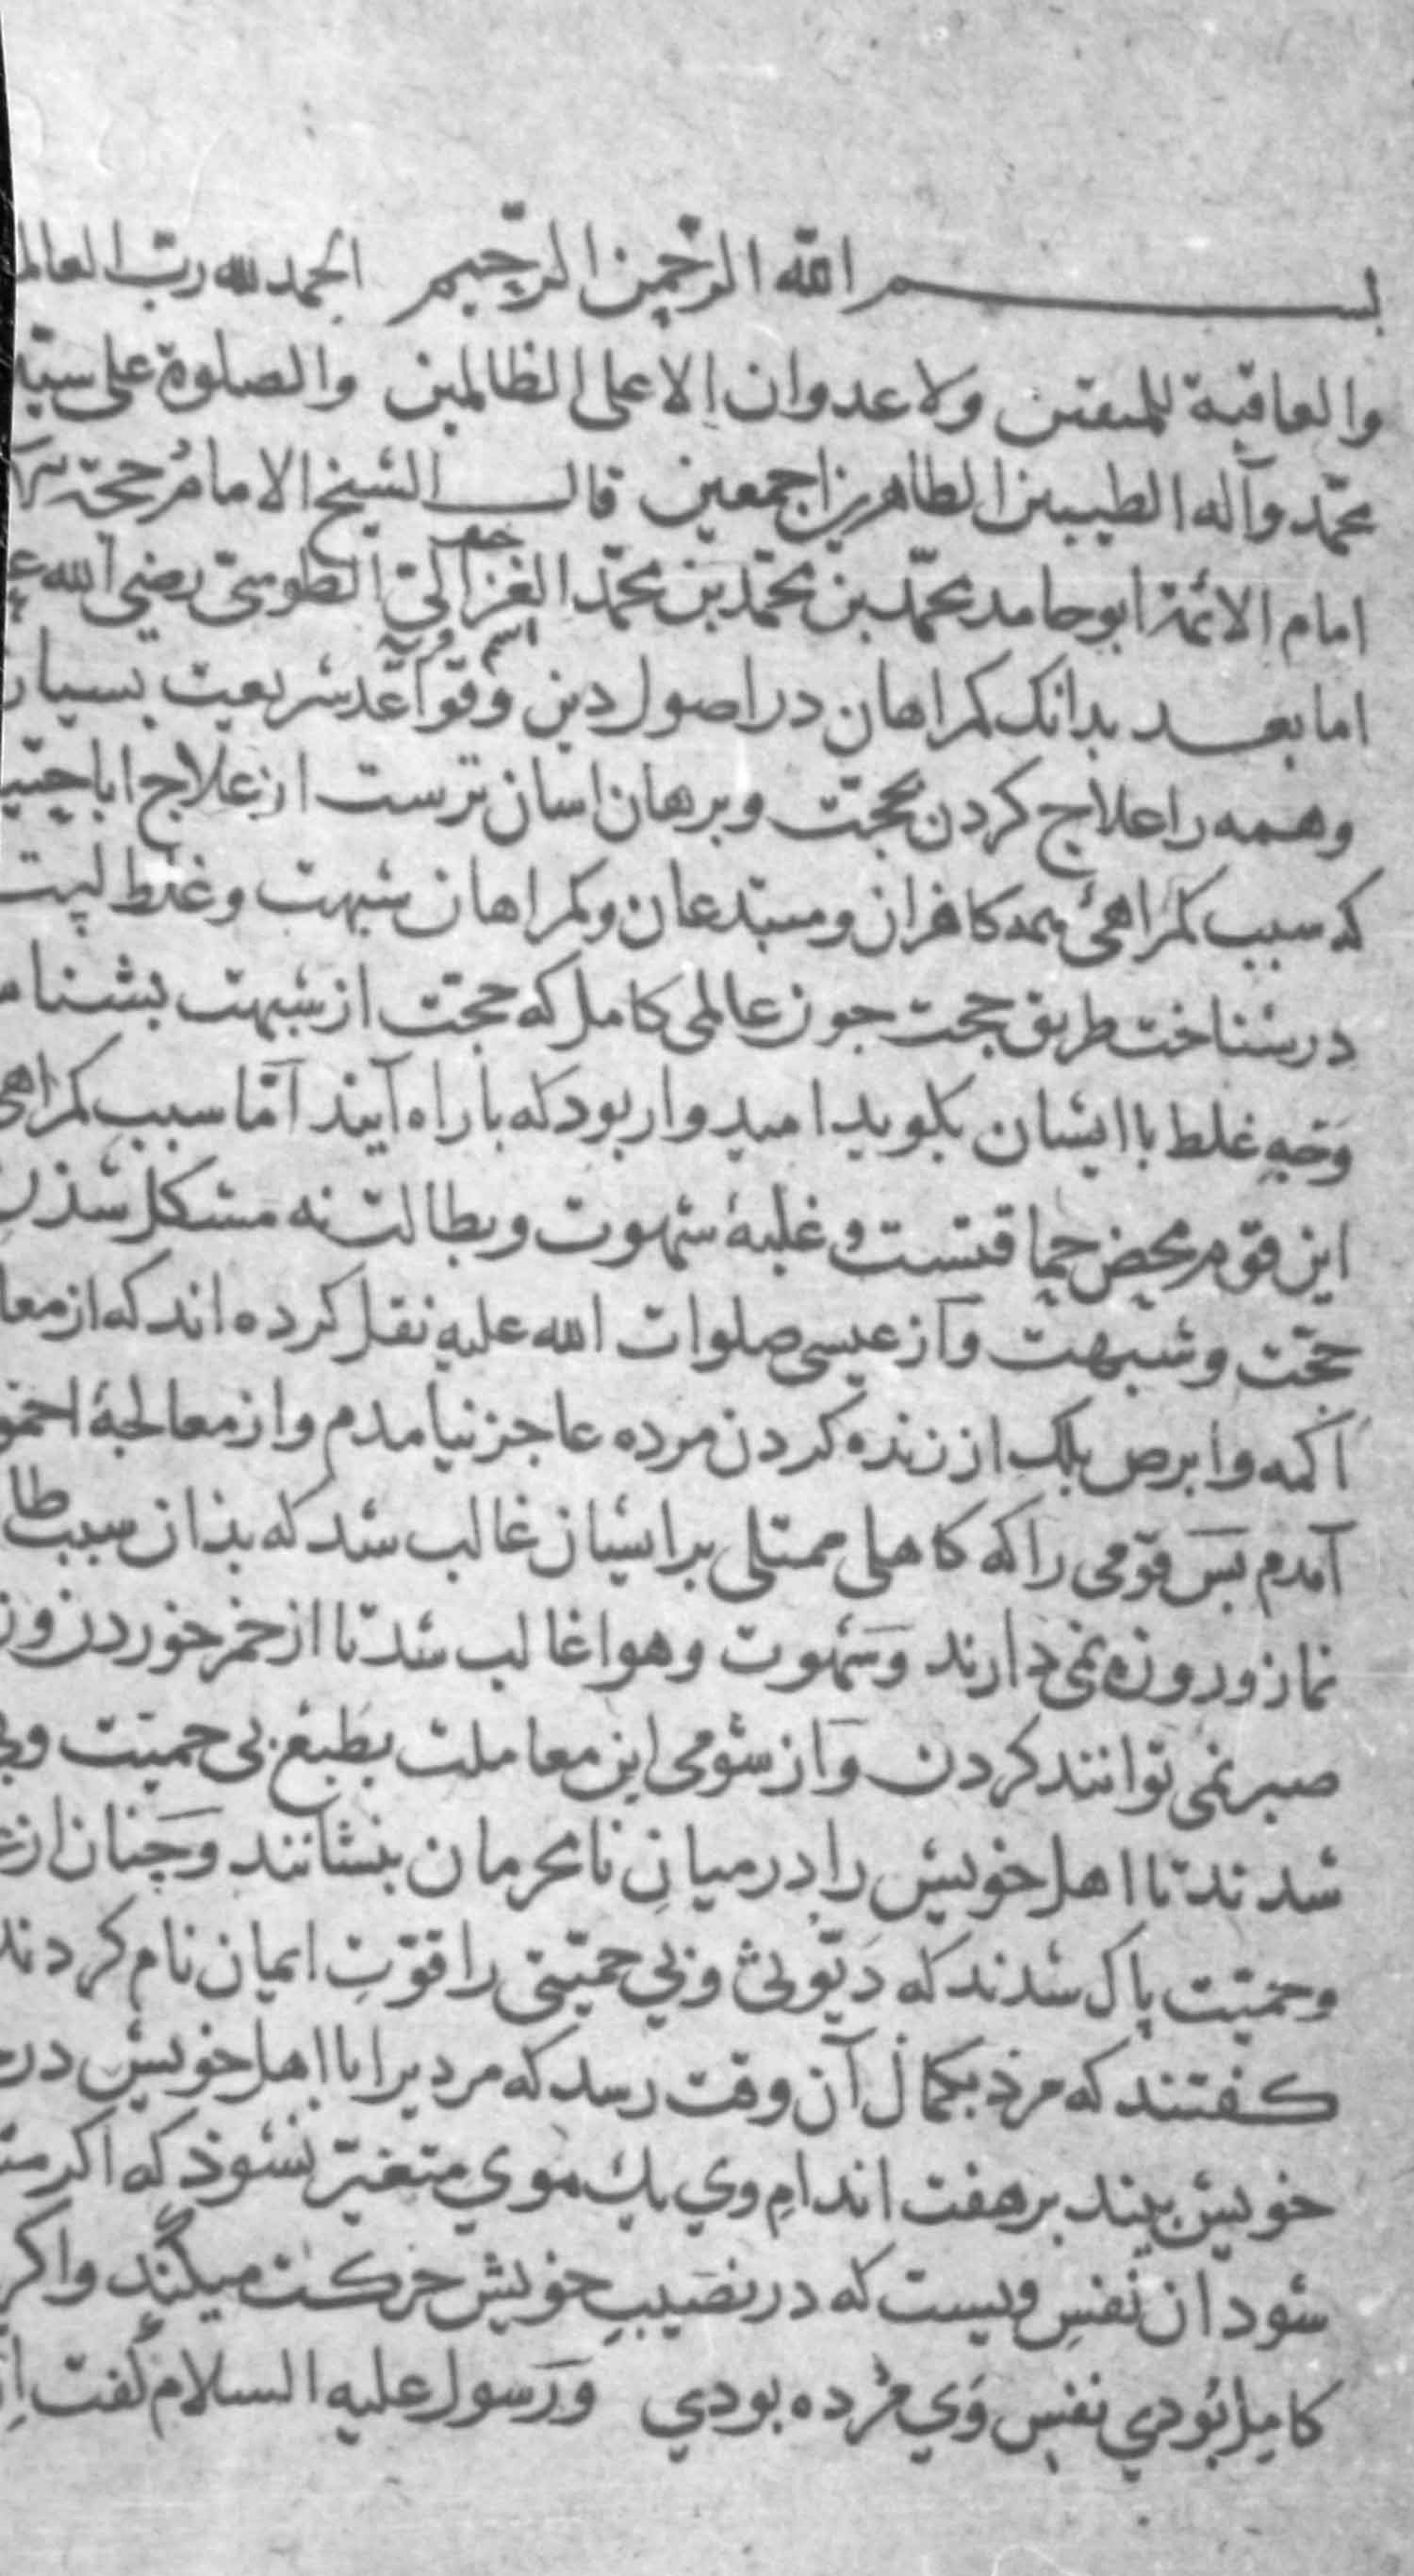 بسم الله الرحمن الرحیم الحمد لله رب العالم
والعاقبة للمتقین ولا عدوان الا علی الظالمین والصلوة علی سید
محمد وآله الطیبین الطاهرین اجمعین قال الشیخ الامام حجة
امام الائمة ابو حامد محمد بن محمد بن محمد الغزالی الطوسی رضی الله ع
اما بعد بدانک کمراهان در اصول دین وقواعد شریعت بسیار
وهمه را علاج کردن بحجت وبرهان اسان ترست از علاج اباحتیا
که سبب کمراهئ همه کافران ومبتدعان وکمراهان شبهت وغلط
در شناخت طریق حجت جون عالمی کامل که حجت از شبهت بشنا
وَجهِ غلط با ایشان بکوید امیدوار بود که با راه آیند اَمّا سبب کمراهی
این قوم محض حماقتست و غلبهٔ شهوت وبطالت نه مشکل شدن
حجّت وشبهت وَاز عیسی صلوات الله علیه نقل کرده اند که از معا
اکمه وابرص بلک از زنده کردن مرده عاجز نیامدم واز معالجهٔ احمق
آمدم بَس قومی را که کاهلی ممتلی بر ایشان غالب شد که بذان سبب طا
نماز وروزه نمی دارند وَشهوت وهوا غالب شد تا از خمر خوردن وز
صبر نمی توانند کردن وَاز شومی این معاملت بطبع بی حمیّت وبی
شدند تا اهل خویش را در میانِ نامحرمان بنشانند وَچنان از غ
وحمیّت پاک شدند که دَیّوثی وبی حمیّتی را قوّتِ ایمان نام کردند
کفتند که مرد بکمال آن وقت رسد که مردی را با اهل خویش در
خویش بیند بر هفت اندامِ وی یک موی متغیّر نشوذ که اکر مت
شود ان نفسِ ویست که در نصیبِ خویش حرکت میکند واکر
کامل بُودی نفسِ وَی مُرده بودی وَرَسول علیه السلام گفت اِ